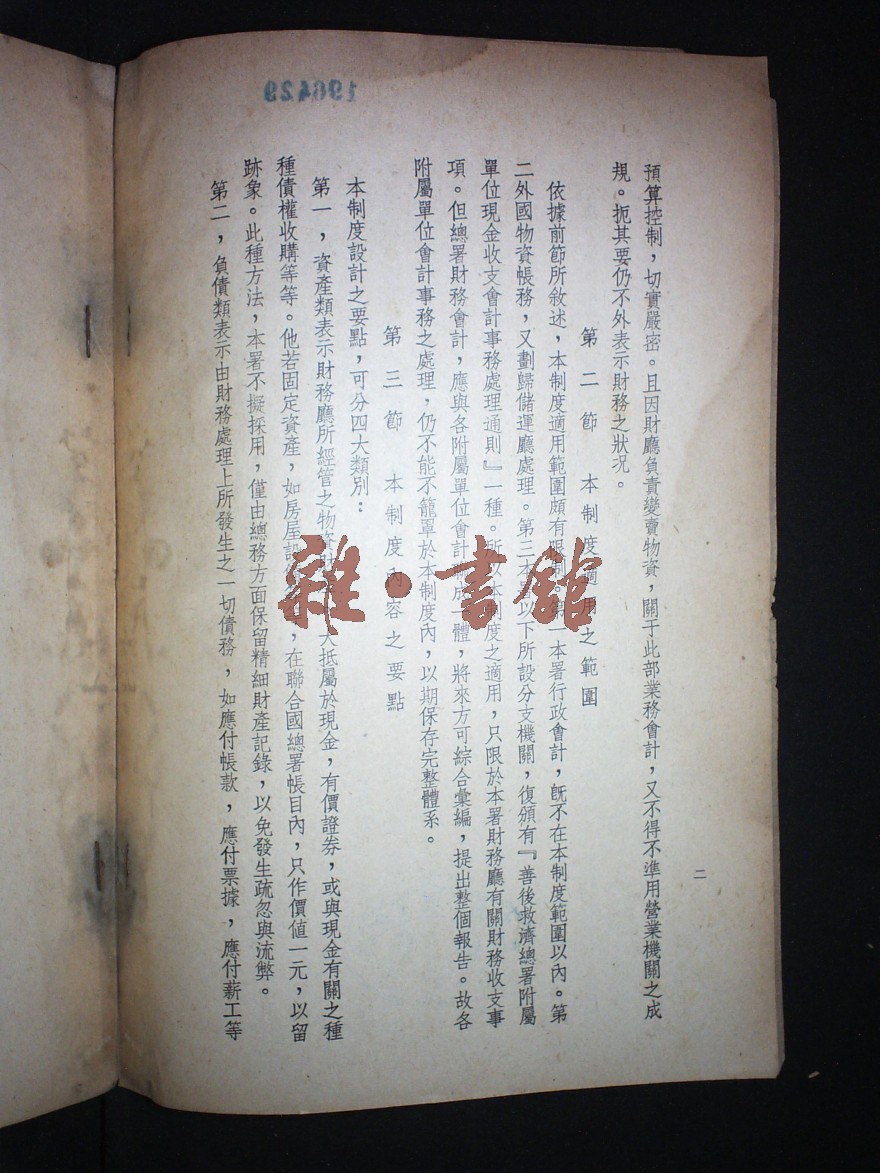 預算控制，切實嚴密。且因財廳負責變賣物資，關于此部業務會計，又不得不準用營業機關之成
規。扼其要仍不外表示財務之狀况。
第二節　本制度適用之範圍
依據前節所敘述，本制度適用範圍頗有限制。第一本署行政會計，旣不在本制度範圍以內。第
二外國物資帳務，又劃歸儲運廳處理。第三本署以下所設分支機關，復頒有『善後救濟總署附屬
單位現金收支會計事務處理通則』一種。所以本制度之適用，只限於本署財務廳有關財務收支事
項。但總署財務會計，應與各附屬單位會計構成一體，將來方可綜合彙編，提出整個報告。故各
附屬單位會計事務之處理，仍不能不籠罩於本制度內，以期保存完整體系。
第三節　本制度內容之要點
本制度設計之要點，可分四大類別：
第一，資產類表示財務廳所經管之物資 大抵屬於現金，有價證券，或與現金有關之種
種債權收購等等。他若固定資產，如房屋設 ，在聯合國總署帳目內，只作價值一元，以留
跡象。此種方法，本署不擬採用，僅由總務方面保留精細財產記錄，以免發生疏忽與流弊。
第二，負債類表示由財務處理上所發生之一切債務，如應付帳款，應付票據，應付薪工等
二
190A29
雜·書館